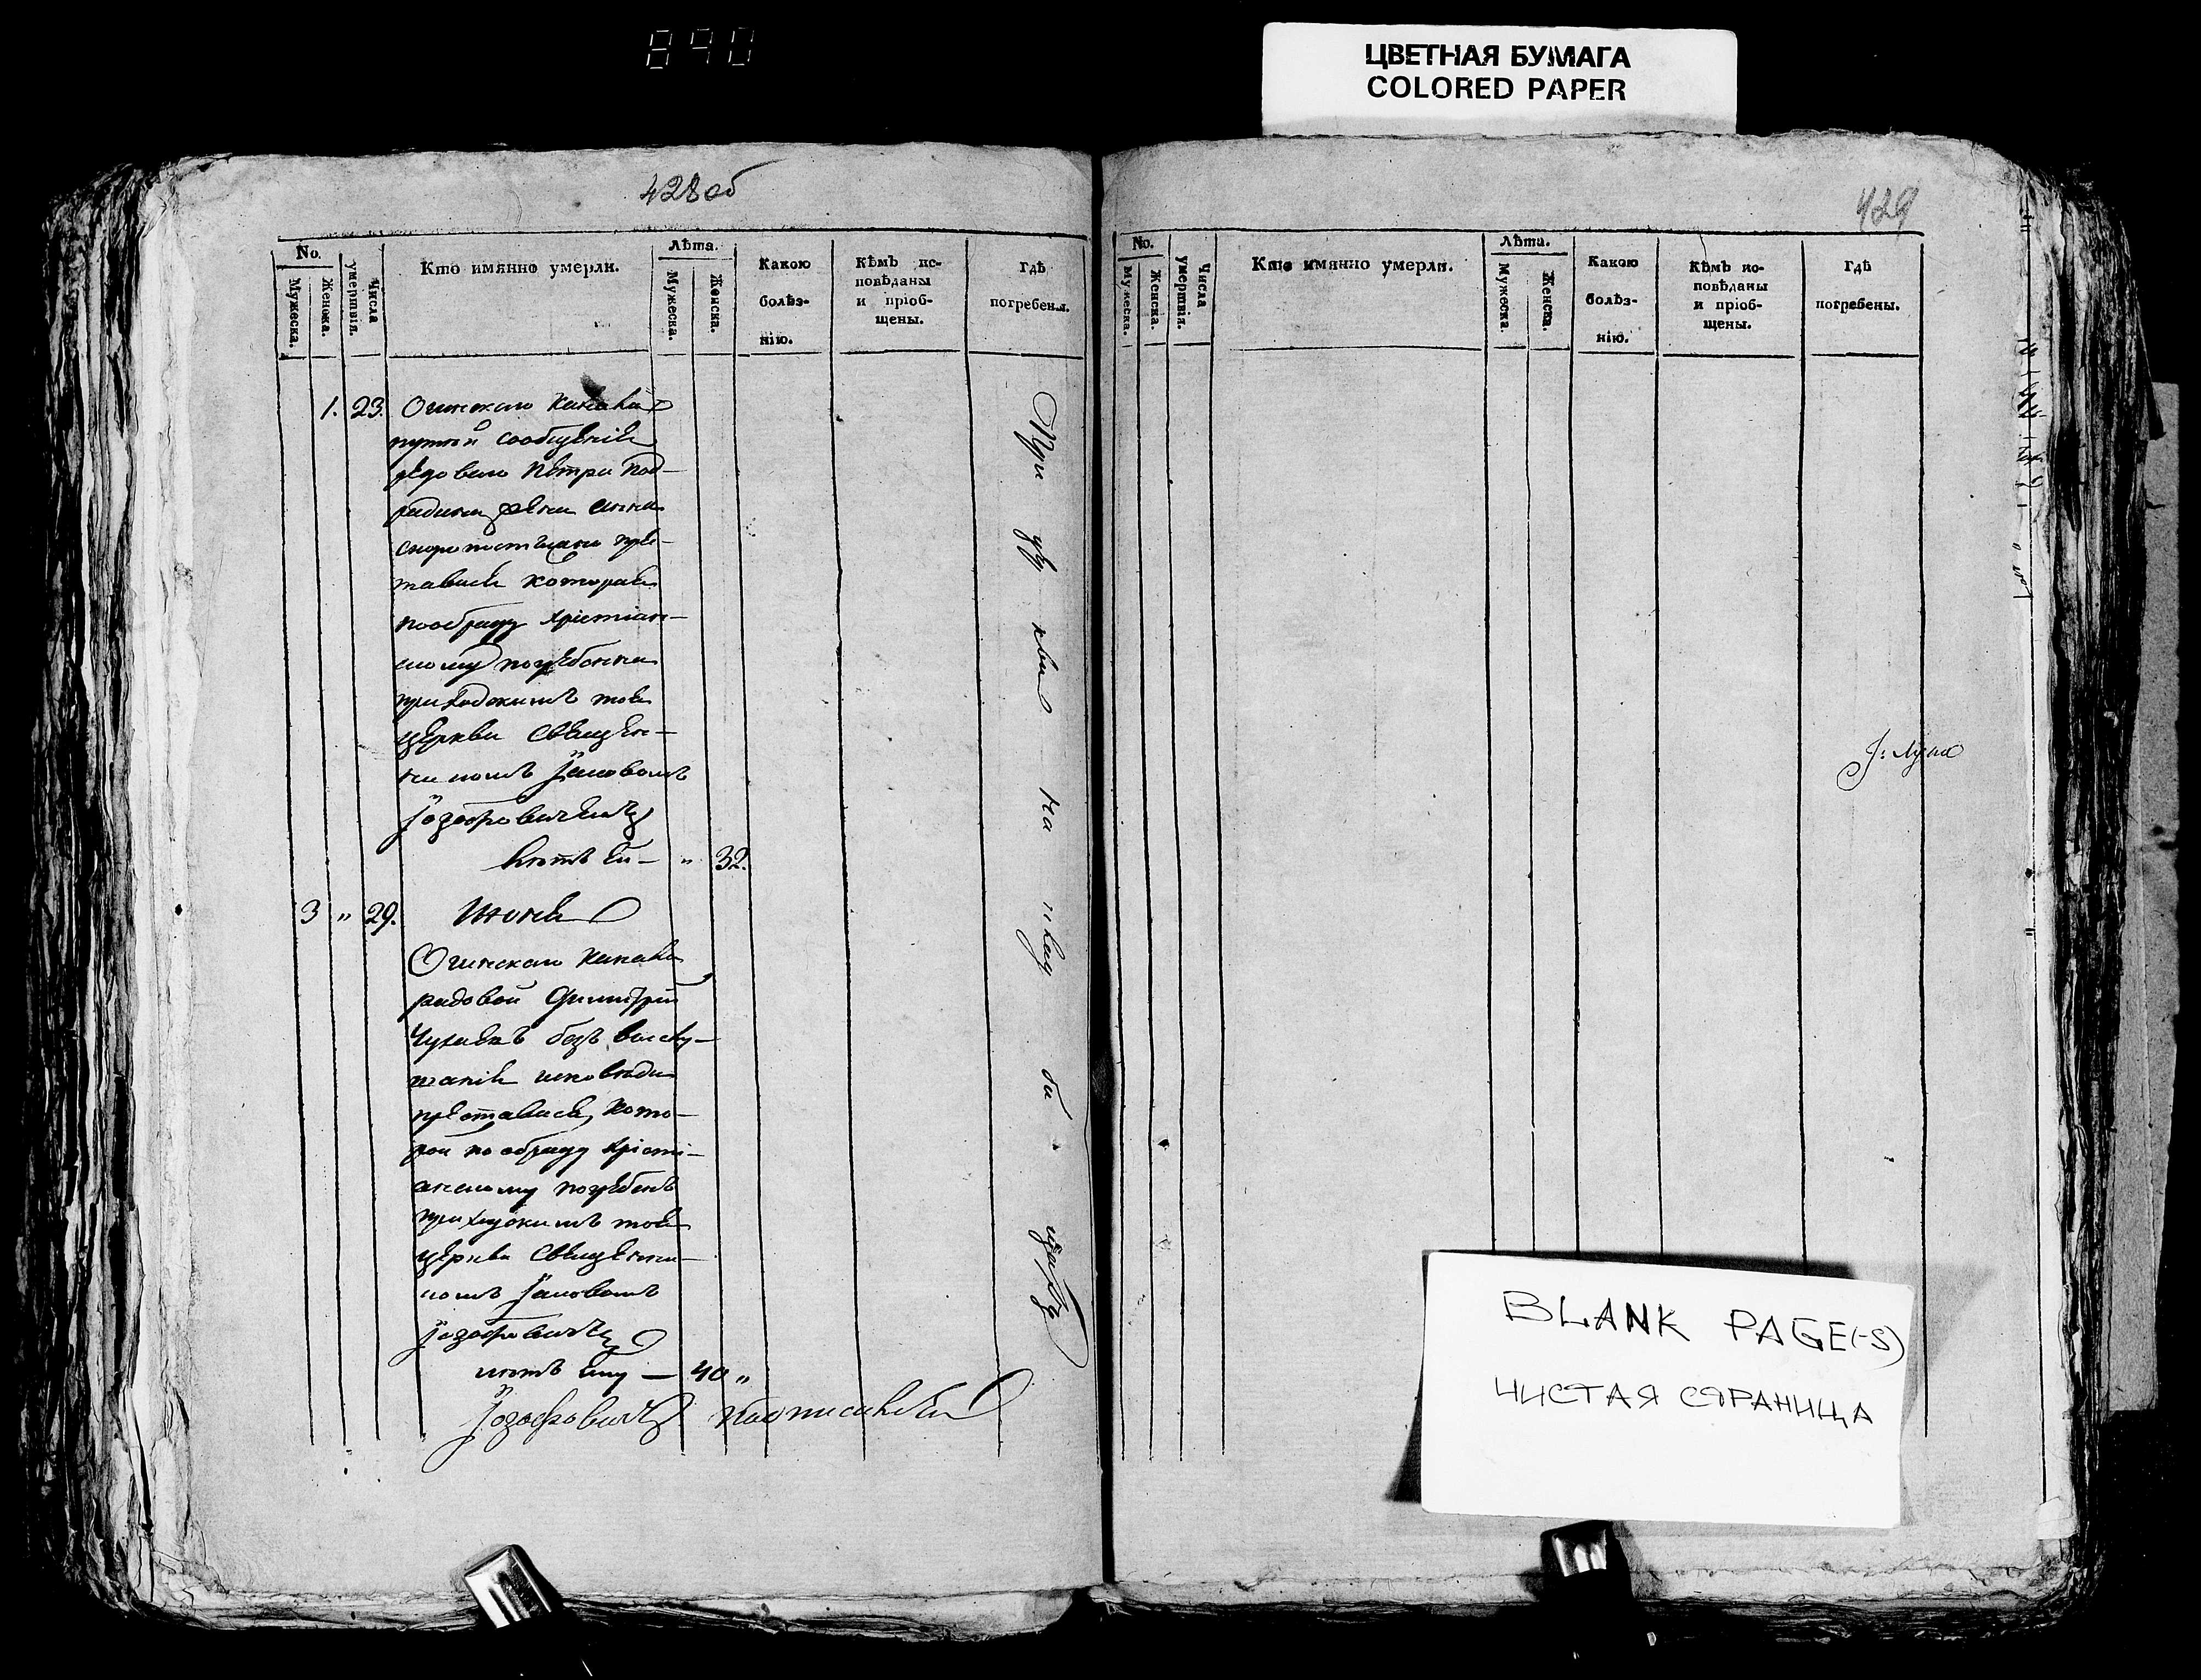 890
ЦВЕТНАЯ БУМАГА
COLORED PAPER
428об
No.
Мужеска.
Женска.
Числа умертвія.
Кто имянно умерли.
Лѣта.
Мужеска.
Женска.
Какою болѣз-
нію.
Кѣмъ ис-
повѣданы
и пріоб-
щены.
Гдѣ
погребены.
1. 23. Огинскаго Канала
путей сообщенія
рядоваго Петра
жена Анна
скоропостижно пре-
ставися которая
по обряду Хрістіан-
скому погребенна
приходскимъ тоя
церкви Священ-
никомъ Іаковомъ
Іозефовичемъ
лѣтъ ей — " 32.
3 " 29. Іюня
Огинскаго Канала
рядовой Димитрій
безъ
исповѣди
преставися, кото-
рой по обряду Хрісті-
анскому погребенъ
приходскимъ тоя
церкви Священни-
комъ Іаковомъ
Іозефовичемъ
лѣтъ ему — 40 "
При
на
клад
би
Іозефовичъ
429
No.
Мужеска.
Женска.
Числа умертвія.
Кто имянно умерли.
Лѣта.
Мужеска.
Женска.
Какою
болѣз-
нію.
Кѣмъ ис-
повѣданы
и пріоб-
щены.
Гдѣ
погребены.
BLANK PAGE(-S)
ЧИСТАЯ СТРАНИЦА